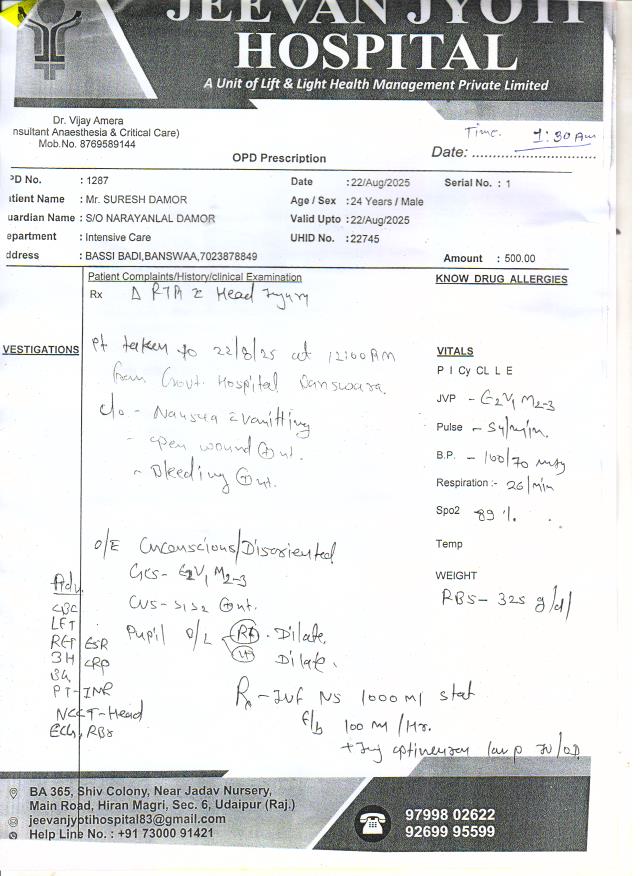 JEEVAN JYOTI
HOSPITAL
A Unit of Lift & Light Health Management Private Limited
Dr. Vijay Amera
nsultant Anaesthesia & Critical Care)
Mob.No. 8769589144
Time. 1:30 Am
Date: ..............................
OPD Prescription
PD No. : 1287 Date : 22/Aug/2025 Serial No. : 1
atient Name : Mr. SURESH DAMOR Age / Sex : 24 Years / Male
uardian Name : S/O NARAYANLAL DAMOR Valid Upto : 22/Aug/2025
epartment : Intensive Care UHID No. : 22745
ddress : BASSI BADI,BANSWAA,7023878849 Amount : 500.00
Patient Complaints/History/clinical Examination KNOW DRUG ALLERGIES
Rx Δ RTA c Head Injury
VESTIGATIONS
Pt taken 22/8/25 at 12:00 AM
from Govt. Hospital Banswara
c/o - Nausea c vomitting
- open wound ⊕nt.
- Bleeding ⊕nt.
VITALS
P I Cy CL L E
JVP - E2V1M2-3
Pulse - 54/min.
B.P. - 100/70 mmHg
Respiration :- 26/min
Spo2 - 89 %.
Temp
WEIGHT
RBS - 325 g/dl
O/E Unconscious/Disoriented
GCS- E2V1M2-3
CVS- S1S2 ⊕nt.
Pupil B/L Rt. Dilate,
Lt Dilate.
Adv.
CBC
LFT
RFT ESR
CRP
PT-INR
NCCT-Head
ECG, RBS
Rx - IVF NS 1000 ml stat
f/b 100 ml/Hr.
+ Inj optineuron 1amp IV/OD
BA 365, Shiv Colony, Near Jadav Nursery,
Main Road, Hiran Magri, Sec. 6, Udaipur (Raj.)
jeevanjyotihospital83@gmail.com
Help Line No. : +91 73000 91421
97998 02622
92699 95599